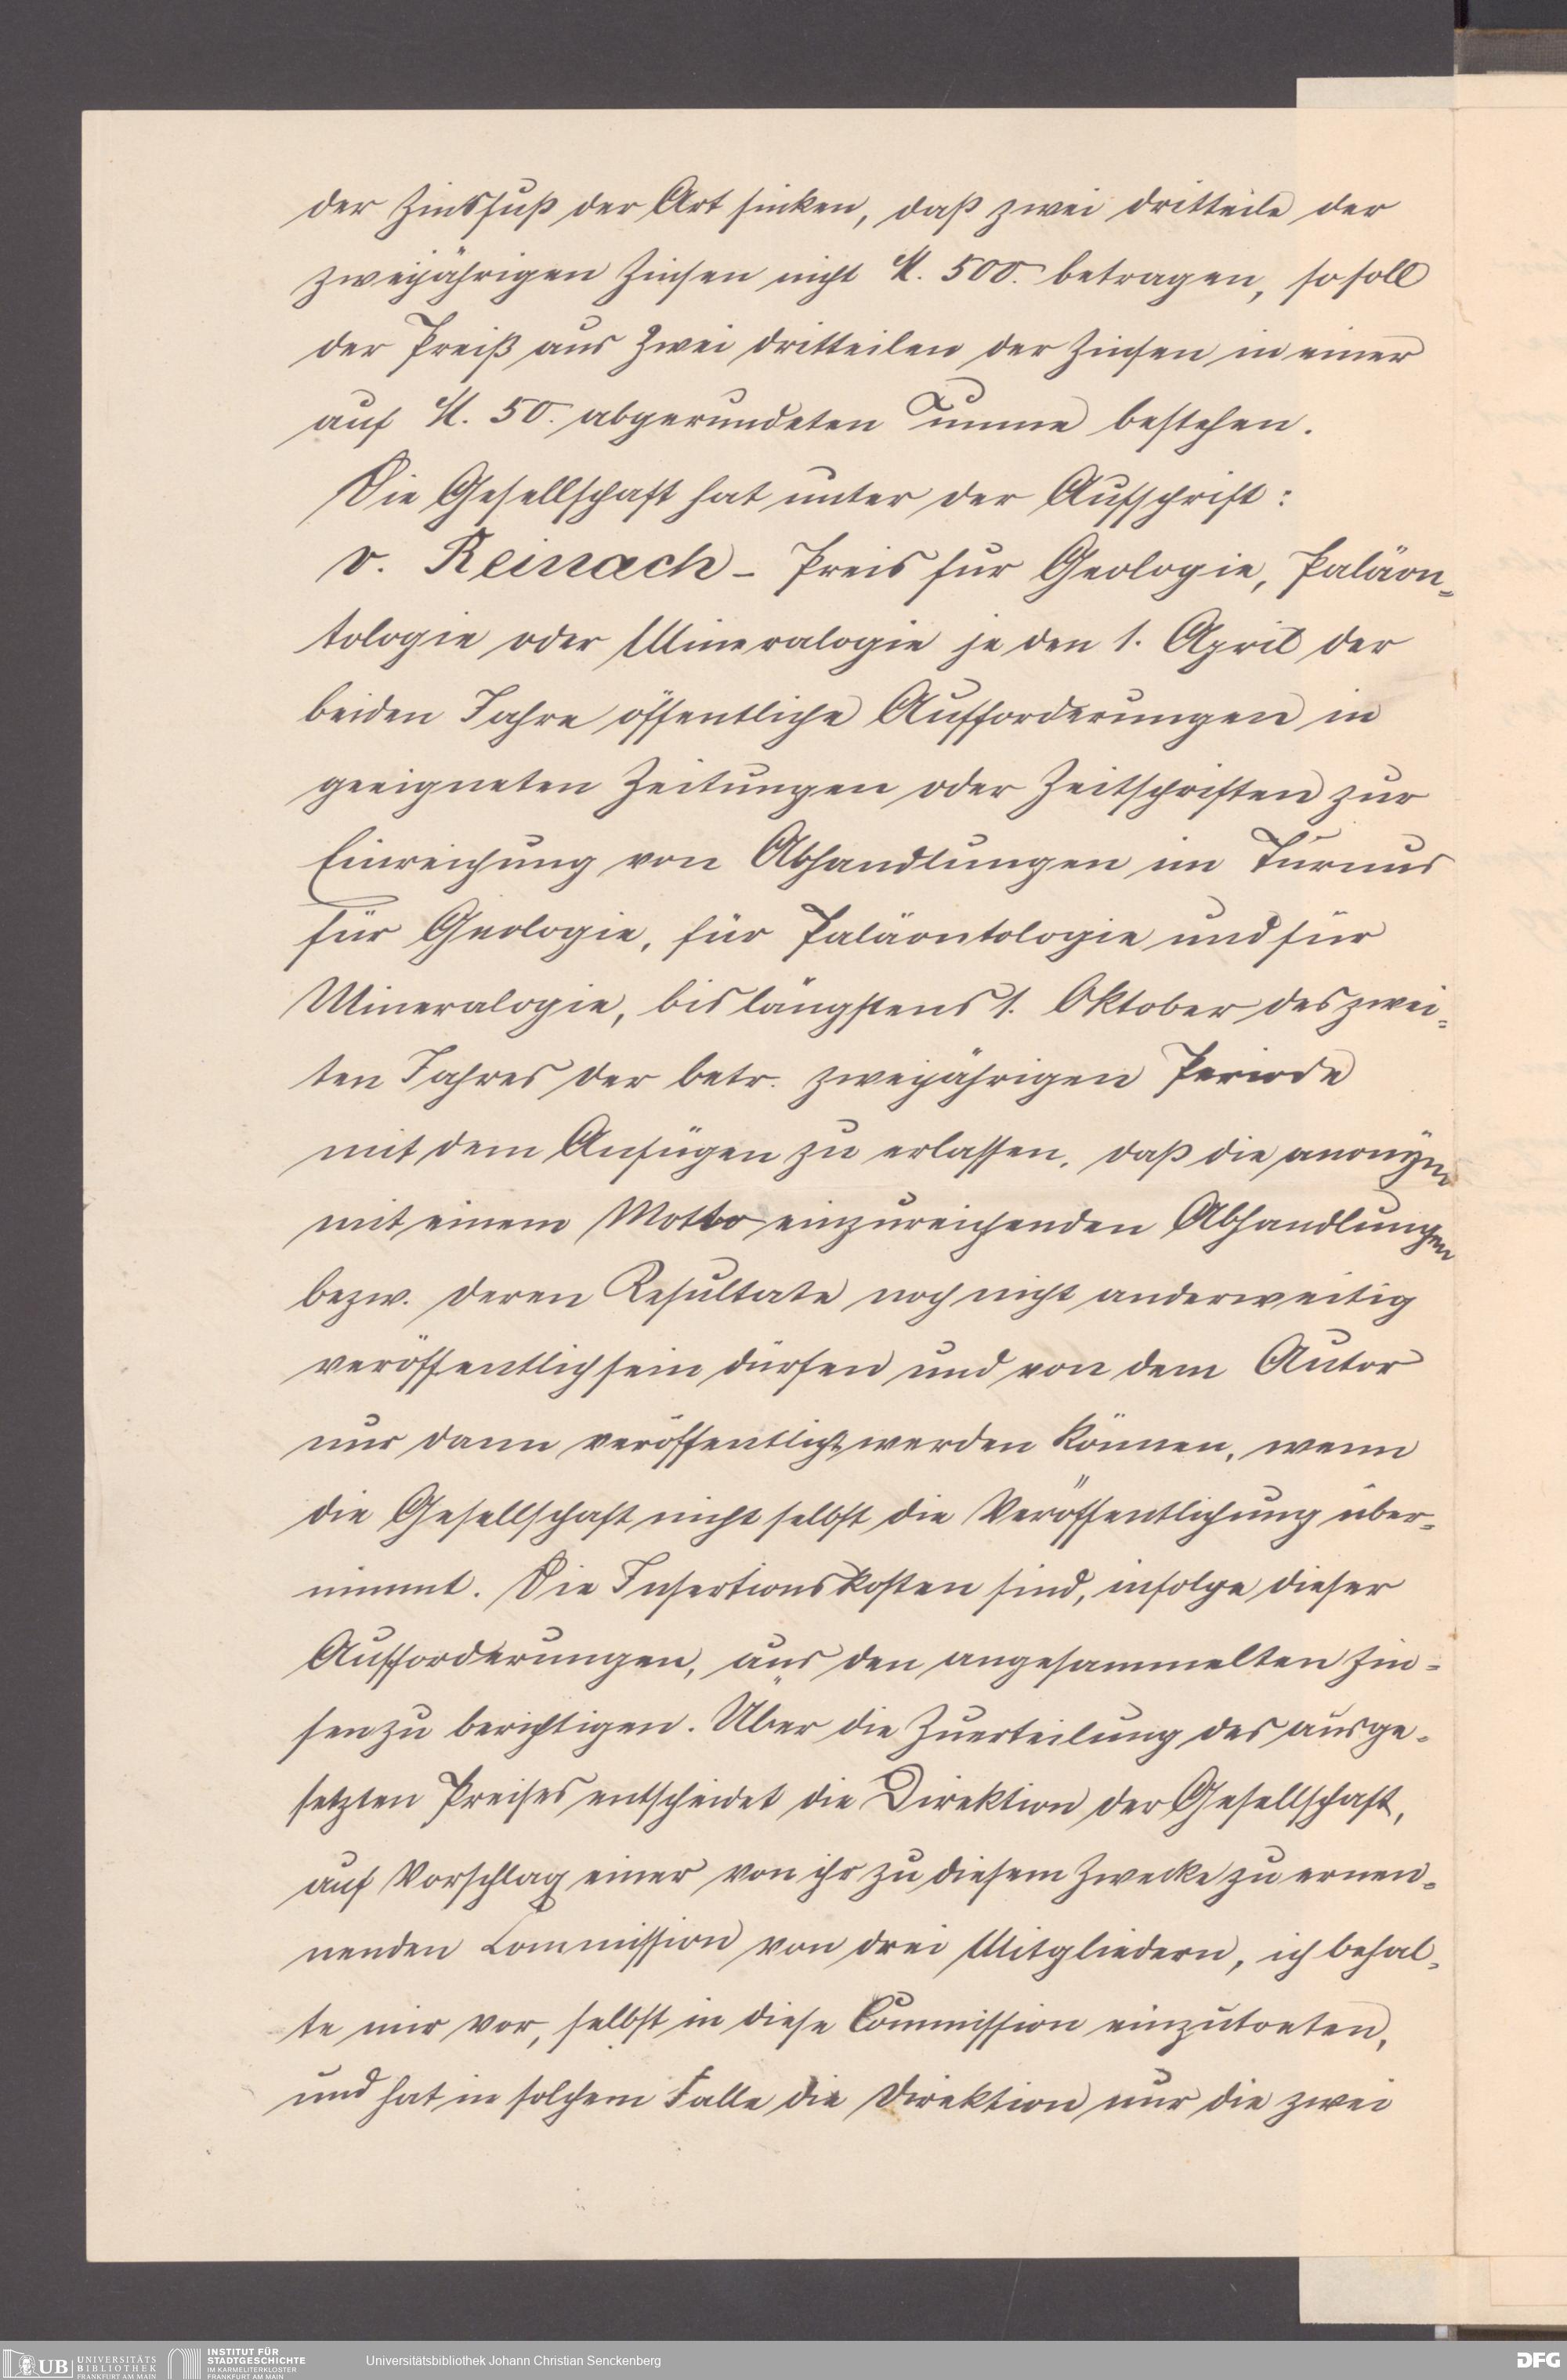 der Zinsfuß der Art sinken, daß zwei dritteile der
zweijährigen Zinsen nicht M. 500. betragen, so soll
der Preiß aus zwei dritteilen der Zinsen in einer
auf M. 50. abgerundeten Summe bestehen.
Die Gesellschaft hat unter der Aufschrift:
v. Reinach - Preis für Geologie, Paläon-
tologie oder Mineralogie je den 1. April der
beiden Jahre öffentliche Aufforderungen in
geeigneten Zeitungen oder Zeitschriften zur
Einreichung von Abhandlungen im Turnus
für Geologie, für Paläontologie und für
Mineralogie, bis längstens 1. Oktober des zwei-
ten Jahres der betr. zweijährigen Periode
mit dem Anfügen zu erlassen, daß die anonym
mit einem Motto einzureichenden Abhandlungen
bezw. deren Resultate noch nicht anderweitig
veröffentlich sein dürfen und von dem Autor
nur dann veröffentlicht werden können, wenn
die Gesellschaft nicht selbst die Veröffentlichung über-
nimmt. Die Insertionskosten sind, infolge dieser
Aufforderungen, aus den angesammelten Zin-
sen zu berichtigen. Über die Zuerteilung des ausge-
setzten Preises entscheidet die Direktion der Gesellschaft,
auf Vorschlag einer von ihr zu diesem Zwecke zu ernen-
nenden Commission von drei Mitgliedern, ich behal-
te mir vor, selbst in diese Commission einzutreten,
und hat in solchem Falle die Direktion nur die zwei
UB UNIVERSITÄTS
BIBLIOTHEK
FRANKFURT AM MAIN
INSTITUT FÜR
STADTGESCHICHTE
IM KARMELITERKLOSTER
FRANKFURT AM MAIN
Universitätsbibliothek Johann Christian Senckenberg
DFG